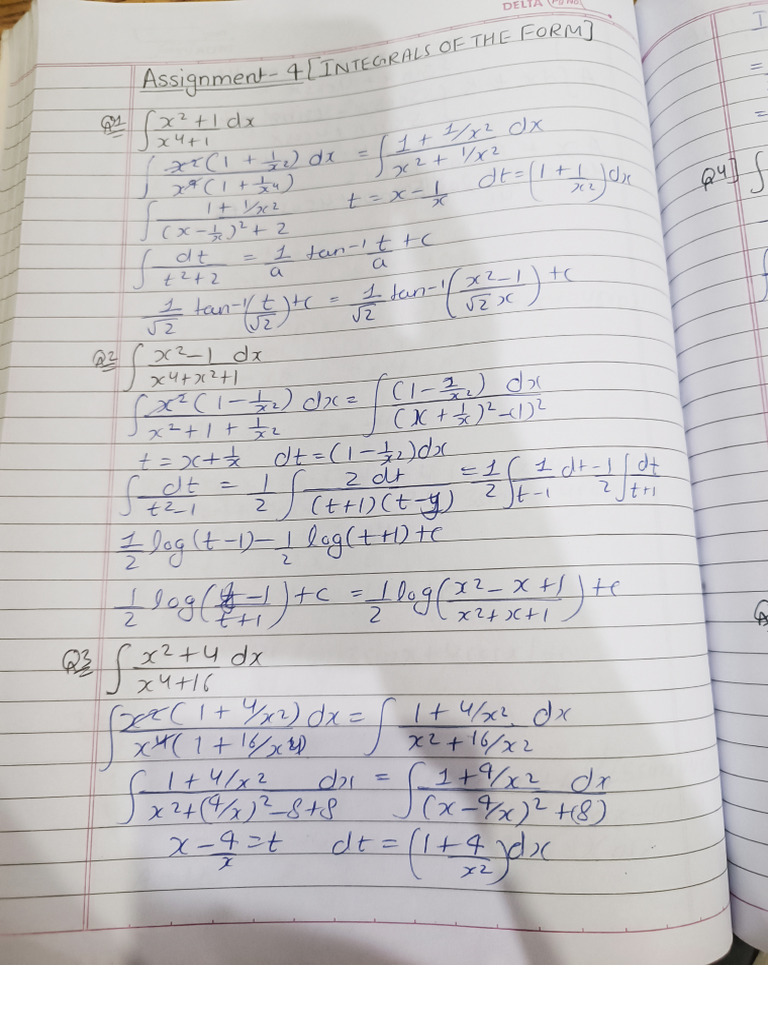 DELTA Pg No.
Assignment-4 [INTEGRALS OF THE FORM]
Q1 ∫ x²+1 dx / x4+1
∫ x²(1 + 1/x²) dx / x⁴(1 + 1/x4) = ∫ 1 + 1/x² dx / x² + 1/x²
∫ 1 + 1/x² / (x - 1/x)² + 2 t = x - 1/x dt = (1 + 1/x²) dx
∫ dt / t²+2 = 1/a tan-1 t/a + c
1/√2 tan-1(t/√2) + c = 1/√2 tan-1(x²-1 / √2 x) + c
Q2 ∫ x²-1 dx / x4+x²+1
∫ x²(1 - 1/x²) dx / x² + 1 + 1/x² = ∫ (1 - 1/x²) dx / (x + 1/x)² - (1)²
t = x + 1/x dt = (1 - 1/x²) dx
∫ dt / t²-1 = 1/2 ∫ 2 dt / (t+1)(t-1) = 1/2 ∫ 1/t-1 dt - 1/2 ∫ dt/t+1
1/2 log(t-1) - 1/2 log(t+1) + c
1/2 log(t-1 / t+1) + c = 1/2 log(x² - x + 1 / x² + x + 1) + c
Q3 ∫ x²+4 dx / x4+16
∫ x²(1 + 4/x²) dx / x4(1 + 16/x4) = ∫ 1 + 4/x² dx / x² + 16/x²
∫ 1 + 4/x² dx / x² + (4/x)² - 8 + 8 = ∫ 1 + 4/x² dx / (x - 4/x)² + (8)
x - 4/x = t dt = (1 + 4/x²) dx
I
=
=
Q4] ∫